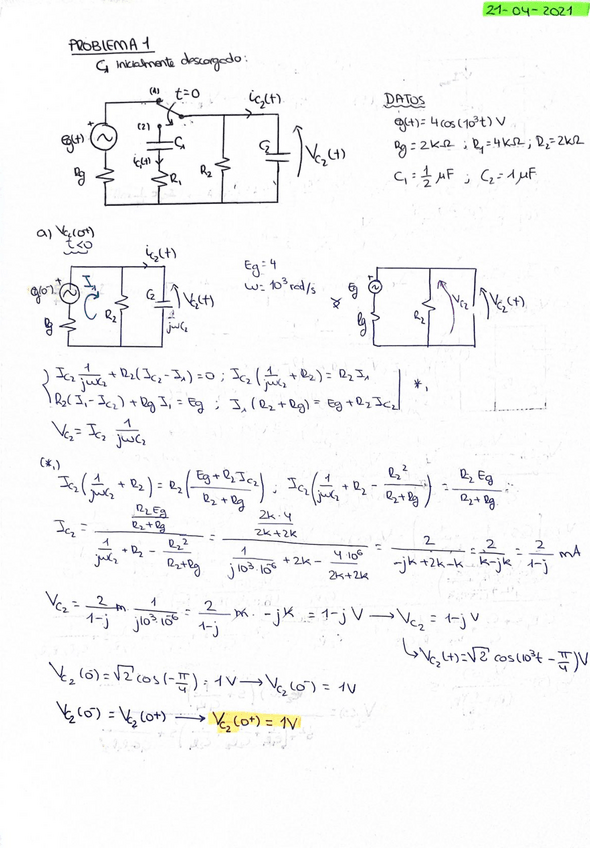 21-04-2021
PROBLEMA 1
C₁ inicialmente descargado:
(1) t=0 i_C₂(t)
eg(t) + (2) C₁ i_C₁(t) R₁ R₂ C₂ V_C₂(t)
Rg
DATOS
eg(t) = 4cos(10³t) V
Rg = 2kΩ ; R₁ = 4kΩ ; R₂ = 2kΩ
C₁ = 1/2 μF ; C₂ = 1μF
a) V_C₂(0+)
t<0 i_C₂(t)
eg(0-) + I₁ R₂ C₂ V_C₂(t)
Rg 1/jωC₂
Eg = 4
ω = 10³ rad/s
Eg + R₂ V_C₂ V_C₂(t)
Rg
I_C₂ 1/jωC₂ + R₂(I_C₂ - I₁) = 0 ; I_C₂ (1/jωC₂ + R₂) = R₂ I₁
R₂(I₁ - I_C₂) + Rg I₁ = Eg ; I₁(R₂ + Rg) = Eg + R₂ I_C₂ *₁
V_C₂ = I_C₂ 1/jωC₂
(*₁)
I_C₂ (1/jωC₂ + R₂) = R₂ ((Eg + R₂ I_C₂)/(R₂ + Rg)) ; I_C₂ (1/jωC₂ + R₂ - R₂²/(R₂+Rg)) = R₂ Eg/(R₂ + Rg)
I_C₂ = (R₂ Eg/(R₂+Rg))/(1/jωC₂ + R₂ - R₂²/(R₂+Rg)) = (2k·4/(2k+2k))/(1/(j10³·10⁻⁶) + 2k - 4·10⁶/(2k+2k)) = 2/(-jk+2k-k) = 2/(k-jk) = 2/(1-j) mA
V_C₂ = 2/(1-j) m · 1/(j10³·10⁻⁶) = 2/(1-j) m · -jk = 1-j V → V_C₂ = 1-j V
↳ V_C₂(t) = √2 cos(10³t - π/4) V
V_C₂(0) = √2 cos(-π/4) = 1V → V_C₂(0-) = 1V
V_C₂(0-) = V_C₂(0+) → V_C₂(0+) = 1V